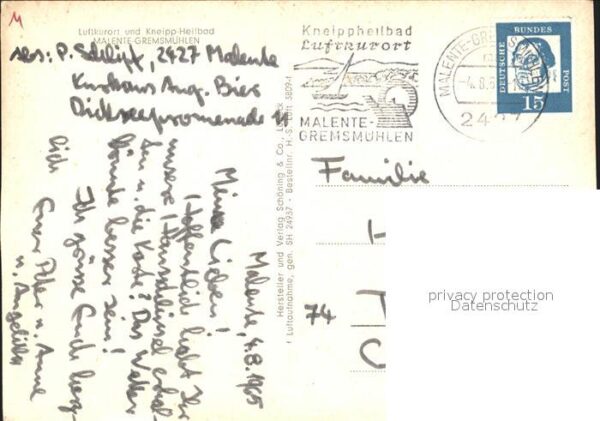 M
Luftkurort und Kneipp-Heilbad
MALENTE-GREMSMÜHLEN
P. 2427 Malente
Kurhaus Aug. Bier
Diekseepromenade 11
Kneippheilbad
Luftkurort
MALENTE-
GREMSMÜHLEN
MALENTE-GREMSMÜHLEN
-4.8.
2427
DEUTSCHE BUNDES POST
15
Hersteller und Verlag Schöning & Co., Lübeck
Luftaufnahme, gen. SH 24937 - Bestellnr. H.-S. Luft 3809
Malente, 4.8.1965
Meine Lieben!
Hoffentlich habt Ihr
unsere erhal-
ten u. die Karte? Das Wetter
könnte besser sein!
Ich grüsse Euch herz-
lich
Euer Peter u. Anne
u.
Familie
H
74 T
privacy protection
Datenschutz